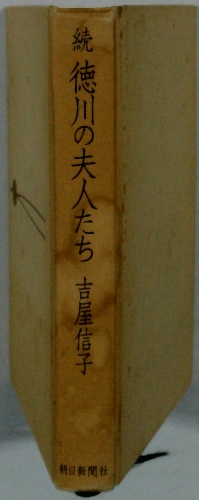 続 徳川の夫人たち
吉屋信子
朝日新聞社